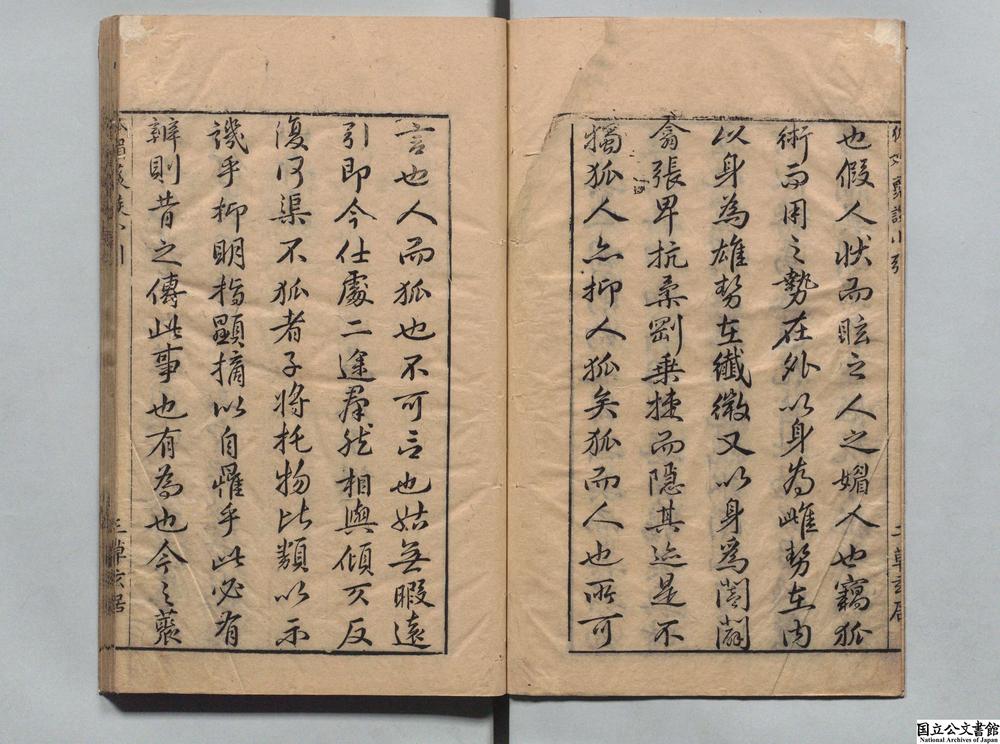 也假人狀而眩之人之媚人也竊狐
術而用之勢在外以身為雌勢在內
以身為雄勢在纖微又以身為闔闢
翕張卑抗柔剛乗捷而隱其迹是不
獨狐人亦抑人狐矣狐而人也所可
言也人而狐也不可言也姑無暇遠
引即今仕處二途羣然相與傾仄反
復何渠不狐者子將托物比類以示
譏乎抑明指顯摘以自罹乎此必有
辨則昔之傳此事也有為也今之裒
小引
草玄居
国立公文書館
National Archives of Japan